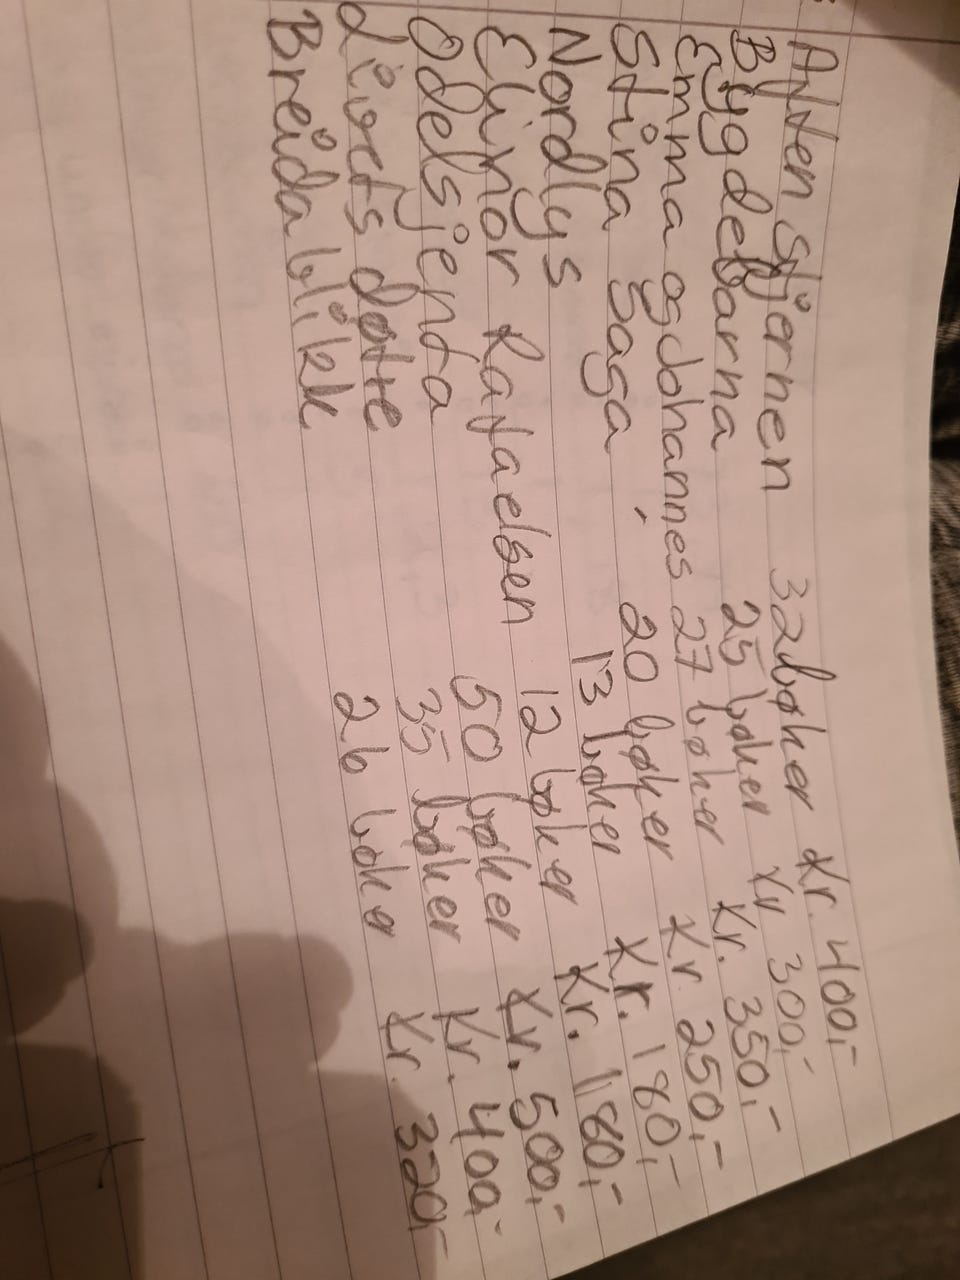 Aftenstjernen 32bøker Kr. 400,-
Bygdebarna 25 bøker Kr 300,-
Emma og Johannes 27 bøker Kr. 350,-
Stina Saga 20 bøker Kr. 250,-
Nordlys 13 bøker Kr. 180,-
Elinor Rafaelsen 12 bøker Kr. 180,-
Odelsjenta 50 bøker Kr. 500,-
Livets døtre 35 bøker Kr. 400,-
Breidablikk 26 bøker Kr. 320,-